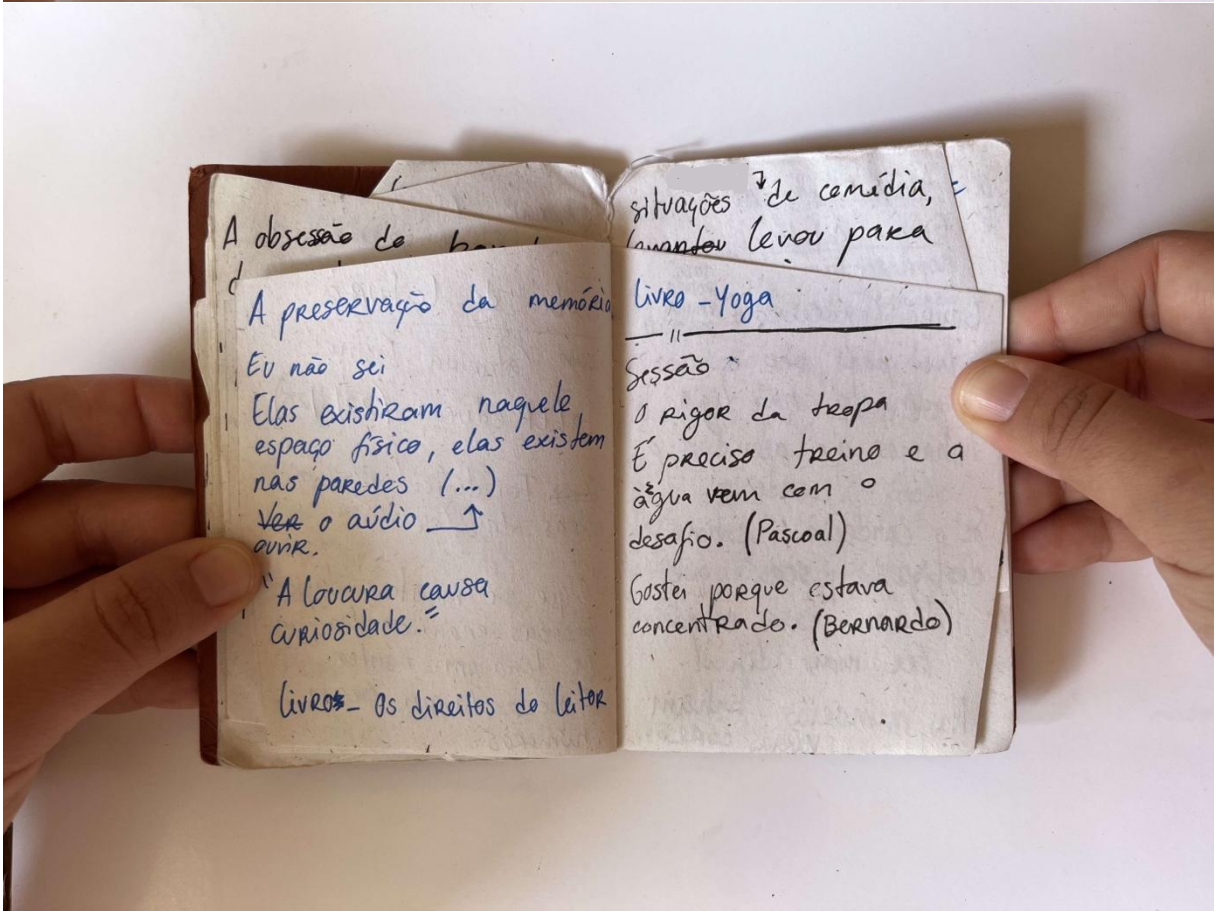 A obsessão do
A preservação da memória
Eu não sei
Elas existiram naquele
espaço físico, elas existem
nas paredes (...)
Ver o aúdio
ouvir.
"A loucura causa
curiosidade."
livros - Os direitos do leitor
situações de comédia,
levantou levou para
livro - Yoga
Sessão
O rigor da tropa
É preciso treino e a
água vem com o
desafio. (Pascoal)
Gostei porque estava
concentrado. (Bernardo)